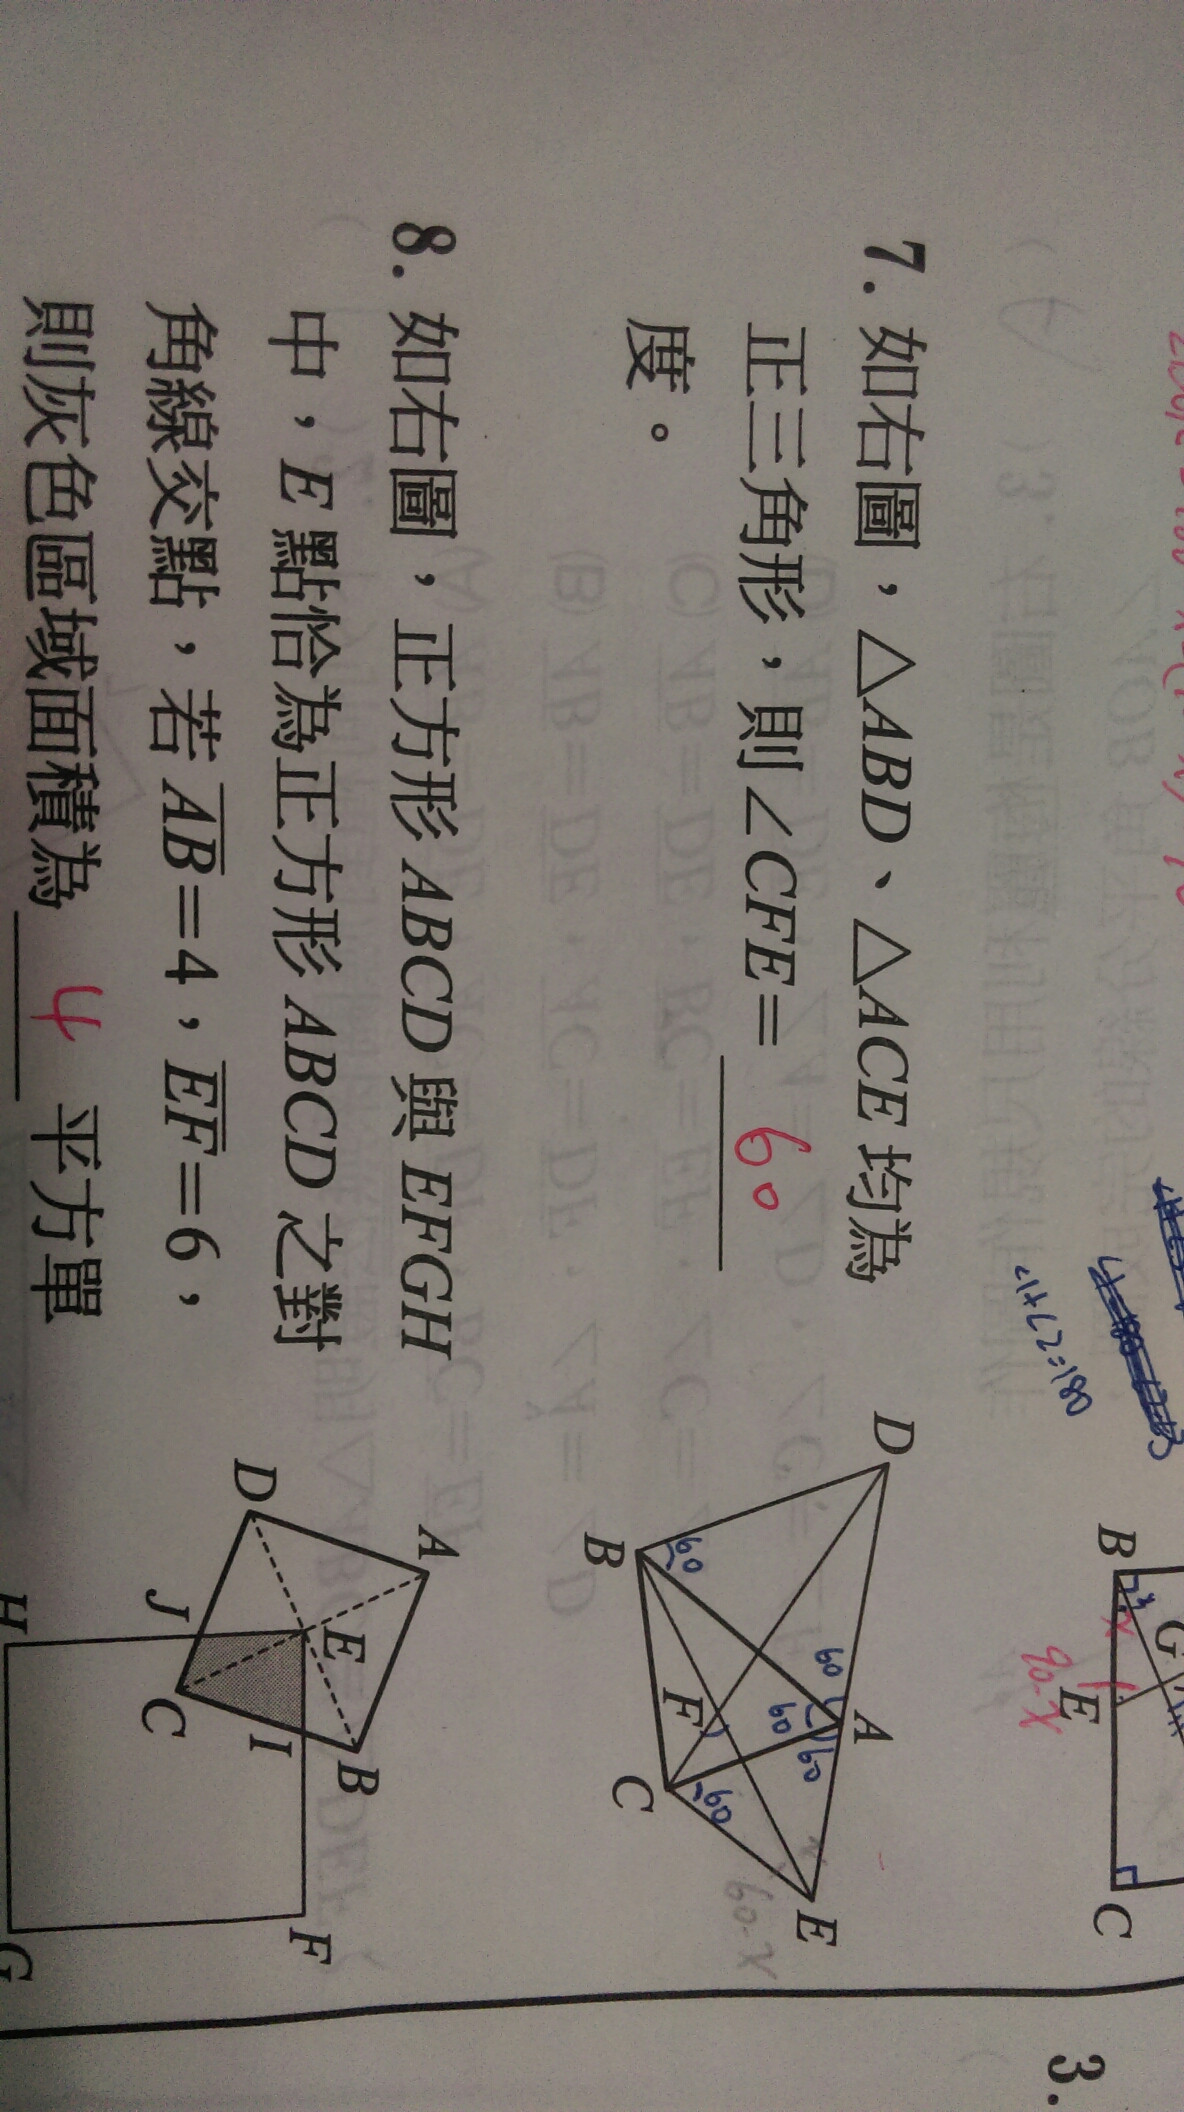 7. 如右圖，△ABD、△ACE 均為
正三角形，則∠CFE= 60
度。
D
A
E
B
C
F
60
60
60
60
60
90-x
8. 如右圖，正方形 ABCD 與 EFGH
中，E 點恰為正方形 ABCD 之對
角線交點，若 AB=4，EF=6，
則灰色區域面積為 4 平方單
A
D
E
B
J
C
I
F
H
G
B
G
E
C
x
90-x
3.